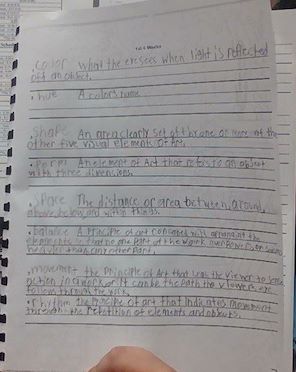 • color what the eye sees when light is reflected
off an object.
• hue A color's name
• shape An area clearly set off by one or more of the
other five visual elements of art.
• Form An element of Art that refers to an object
with three dimensions.
• Space The distance or area between, around,
above, below and within things.
• balance A Principle of art concerned with arranging the
elements so that no one part of the work overpowers, or seems
heavier than any other part.
• movement the Principle of Art that leads the viewer to sense
action in a work, or it can be the path the viewers eye
follow through the work.
• rhythm the Principle of art that indicates movement
through the repetition of elements and objects.